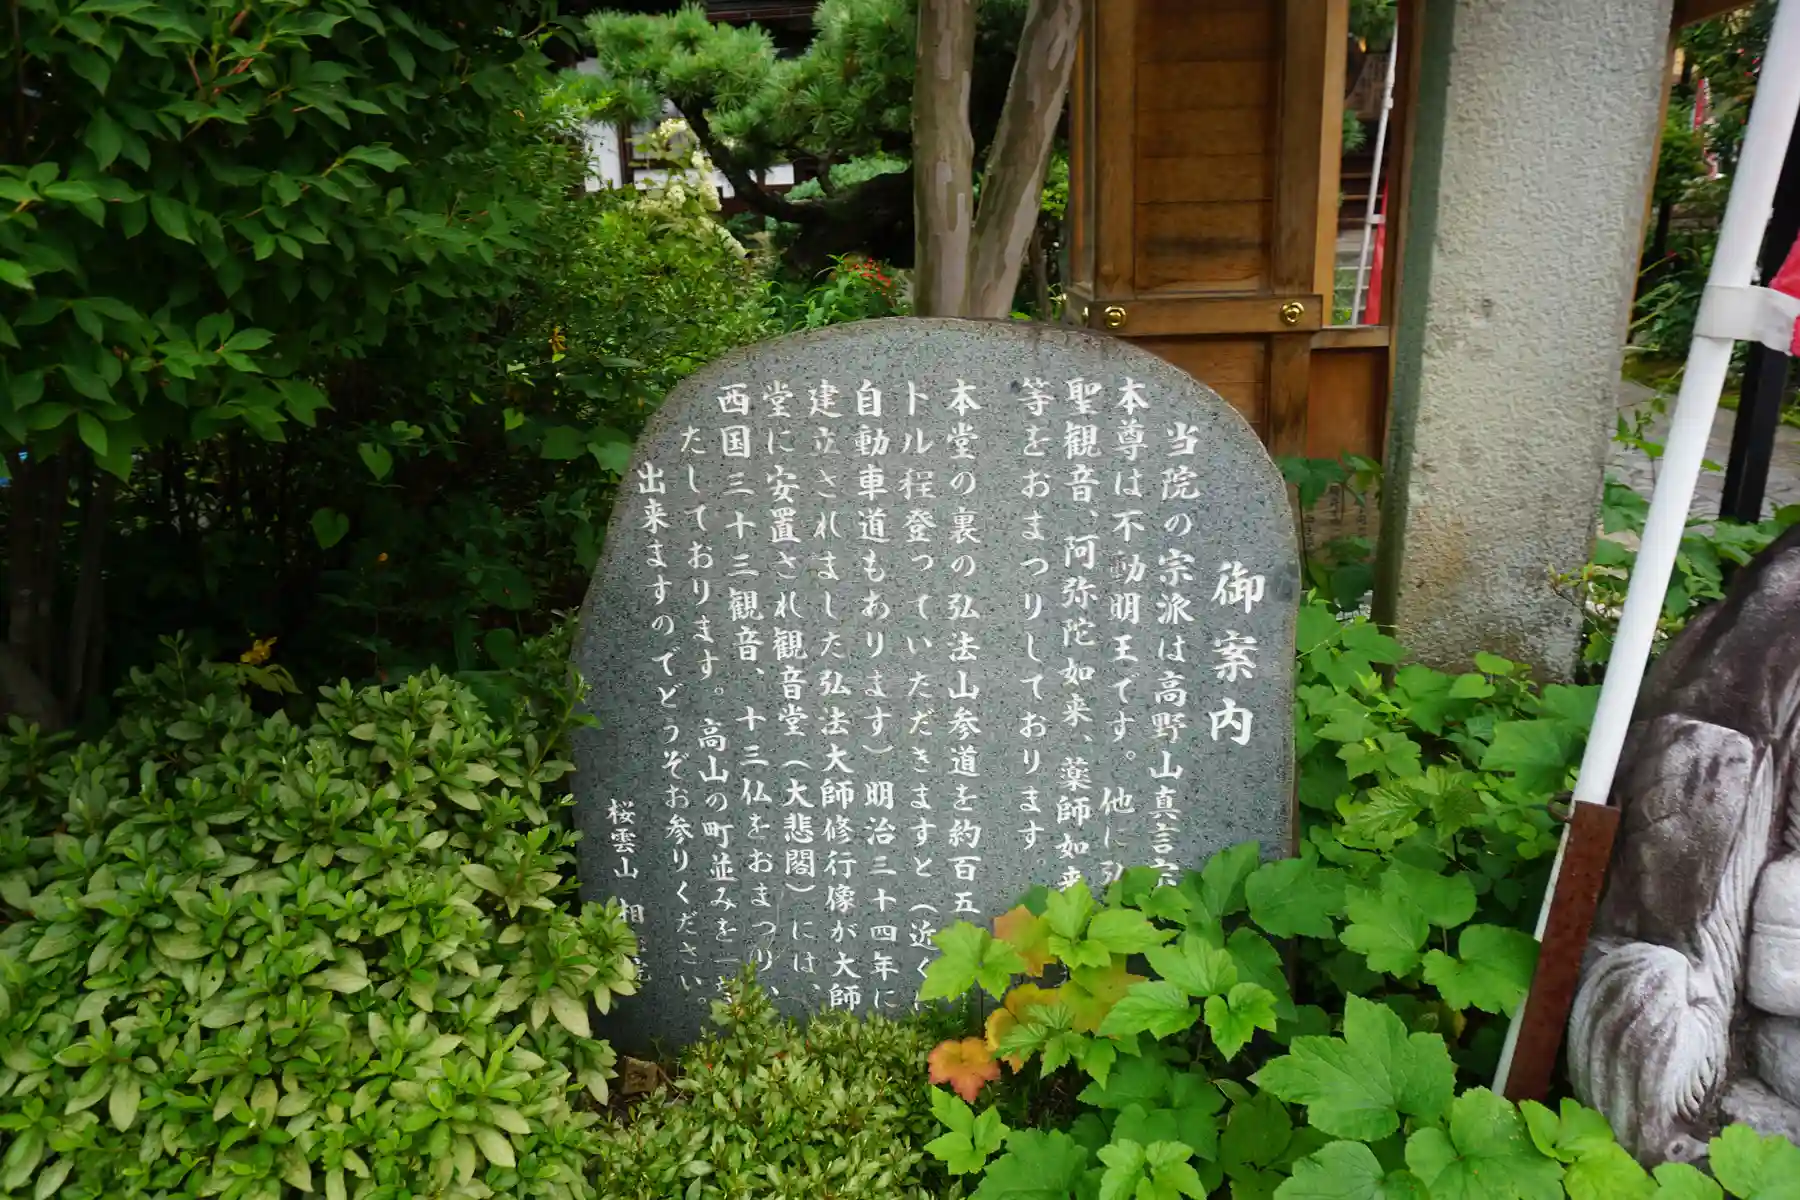 御案内
当院の宗派は高野山真言宗
本尊は不動明王です。他に弘
聖観音、阿弥陀如来、薬師如来
等をおまつりしております。
本堂の裏の弘法山参道を約百五
トル程登っていただきますと（近くに
自動車道もあります）明治三十四年に
建立されました弘法大師修行像が大師
堂に安置され観音堂（大悲閣）には、
西国三十三観音、十三仏をおまつり、
たしております。高山の町並みを一
出来ますのでどうぞお参りください。
桜雲山 相